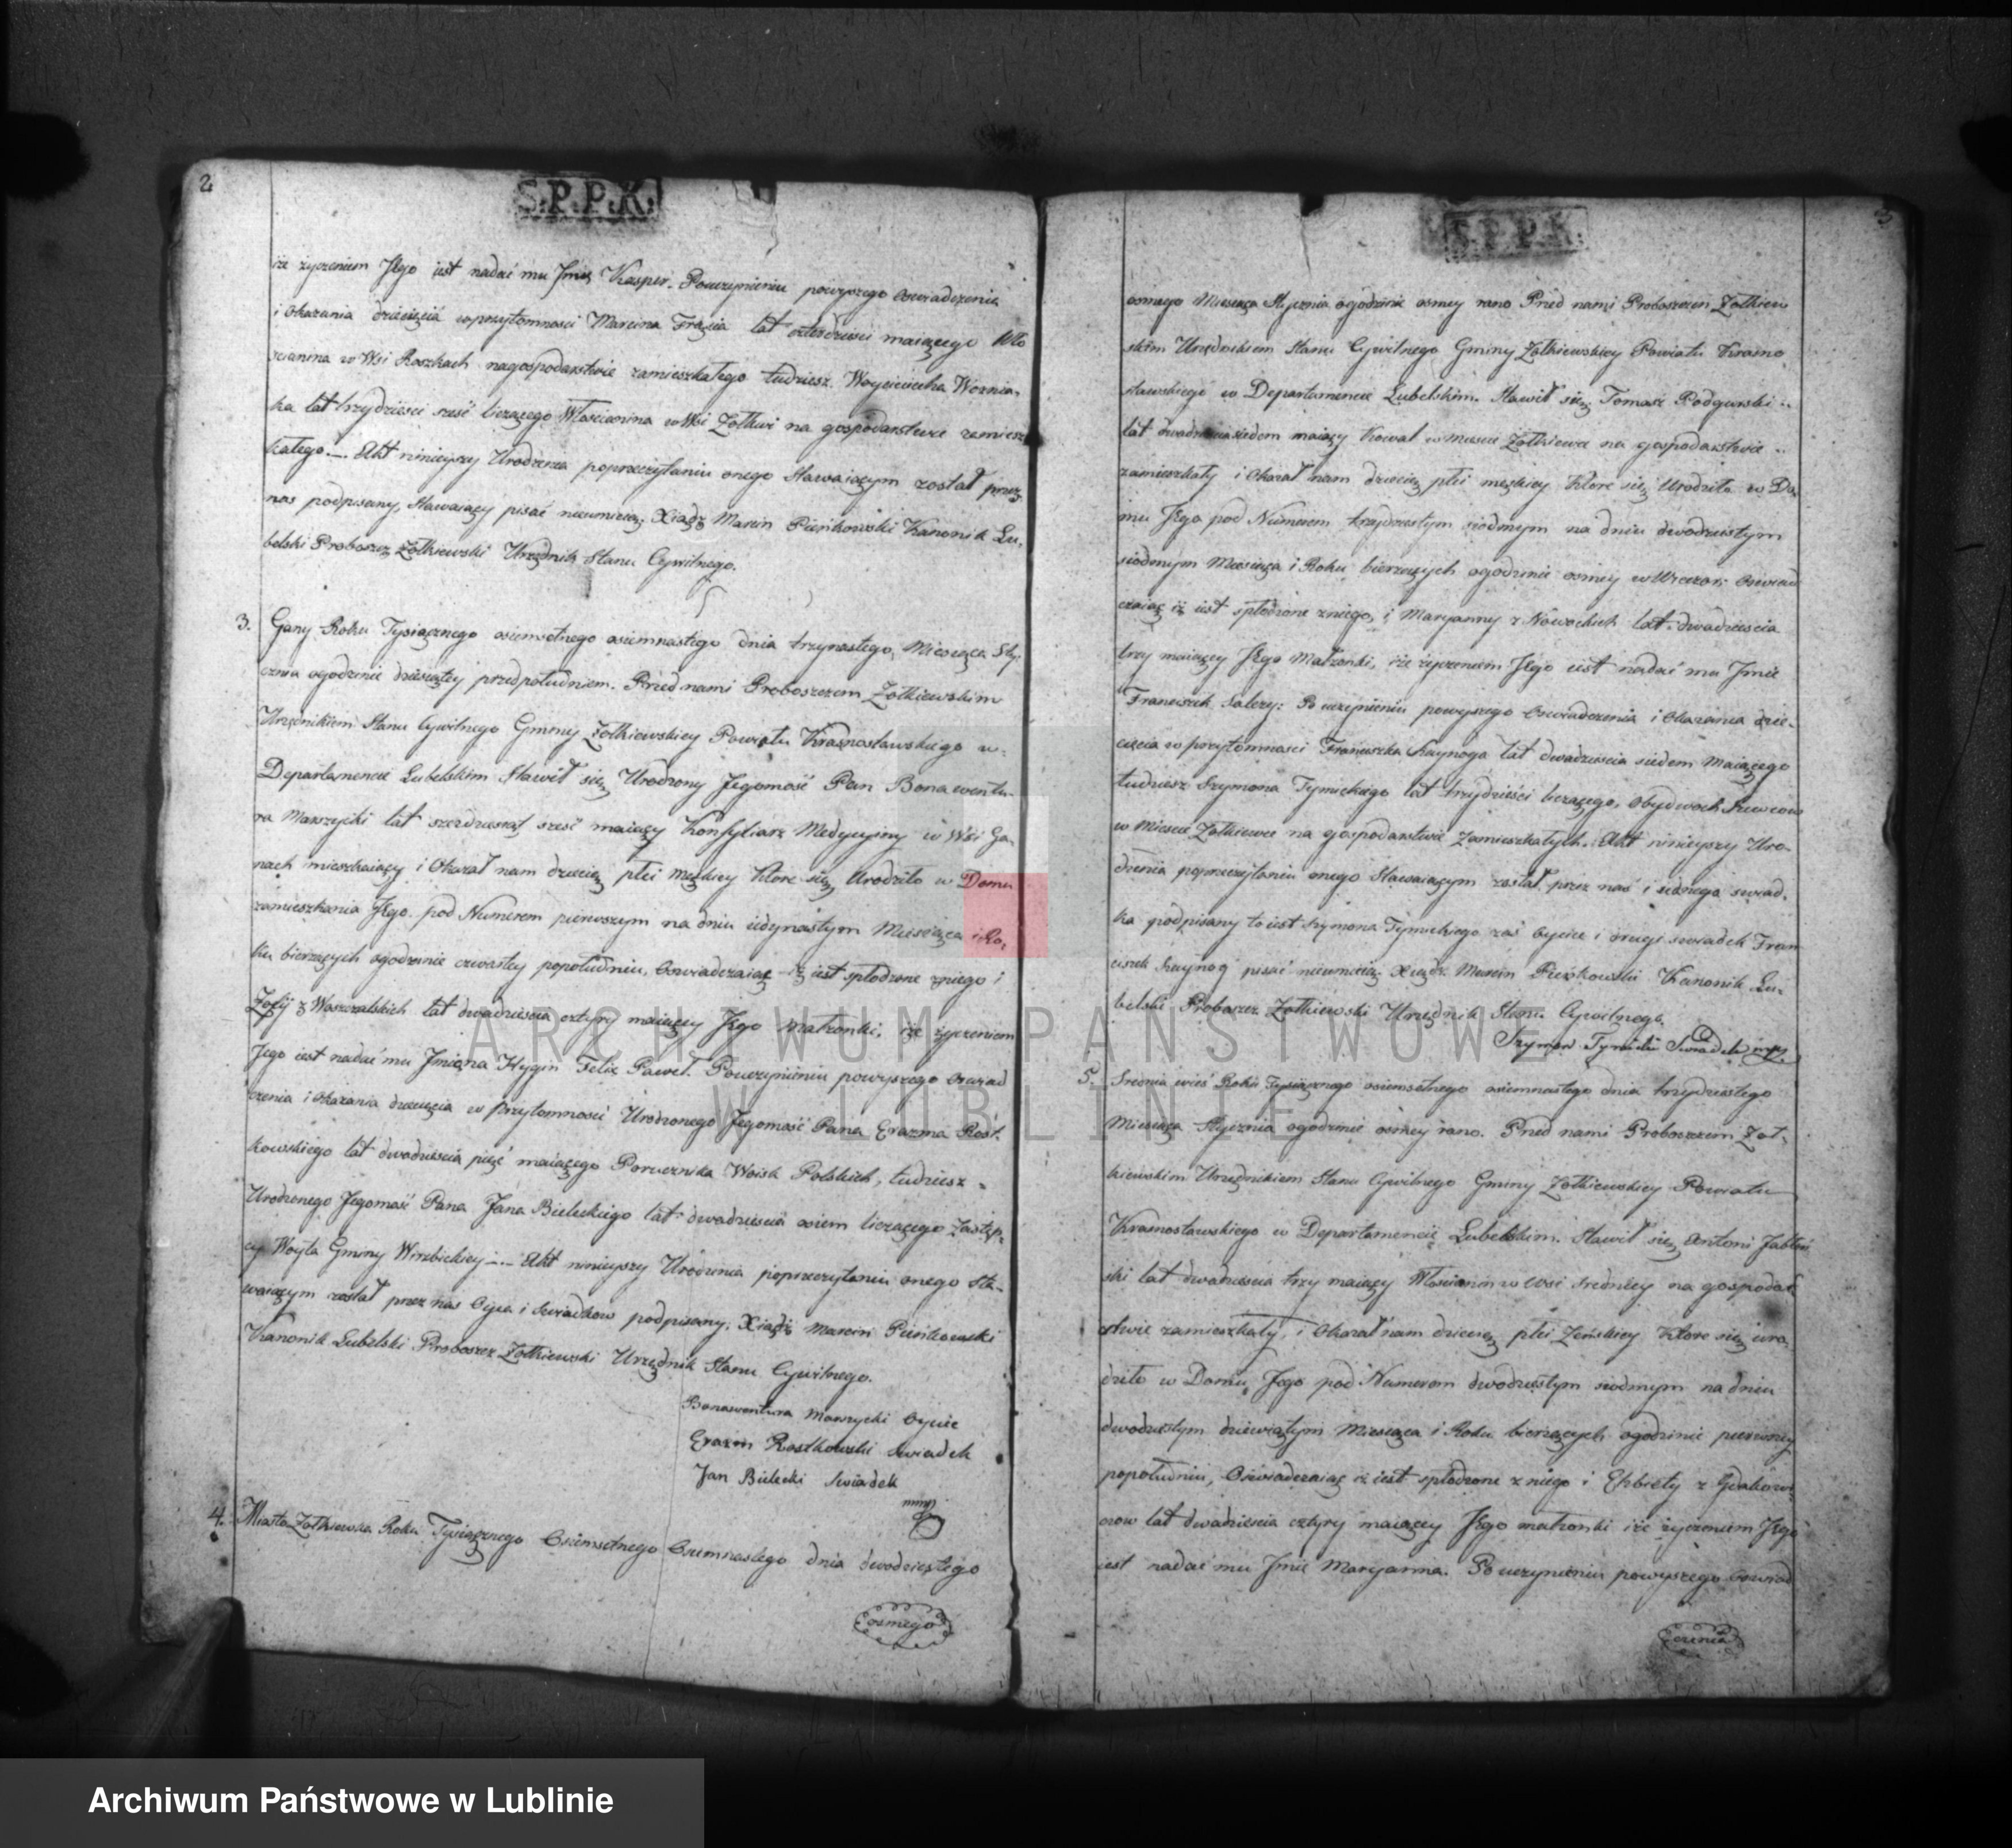 2
S.P.P.K.
iże życzeniem Jego iest nadać mu Jmię Kasper. Pouczynieniu powyższego oswiadczenia
i okazania dziecięcia wprzytomnosci Marcina Frącia lat czterdziesci maiącego Wło
scianina w Wsi Roszkach nagospodarstwie zamieszkałego tudziesz Woyciecha Woznia-
ka lat trzydziesci szesć liczącego Włoscianina w Wsi Zołkwi na gospodarstwie zamiesz
kałego.— Akt ninieyszy Urodzenia poprzeczytaniu onego Stawaiącym został przez
nas podpisany, Stawaiący pisać nieumieią. Xiądz Marcin Pieńkowski Kanonik Lu-
belski Proboszcz Zołkiewski Urzędnik Stanu Cywilnego.
3. Gany Roku Tysiącznego osiemsetnego osiemnastego dnia trzynastego, Miesiąca Sty-
cznia ogodzinie dziesiątey przedpołudniem. Przed nami Proboszczem Zołkiewskim
Urzędnikiem Stanu Cywilnego Gminy Zołkiewskiey Powiatu Krasnostawskiego w-
Departamencie Lubelskim Stawił się Urodzony Jegomość Pan Bonawentu-
ra Marszycki lat szerdziesiąt szesć maiący Konsyliarz Medycyny w Wsi Ga-
nach mieszkaiący i okazał nam dziecię płci męskiey które się Urodziło w Domu
zamieszkania Jego pod Numerem pierwszym na dniu iedynastym Miesiąca i Ro-
ku bierzących ogodzinie czwartey popołudniu, Oswiadczaiąc iż iest spłodzone zniego i
Zofij z Waszczalskich lat dwadziescia cztyry maiącey Jego małzonki, iże życzeniem
Jego iest nadać mu Jmiona Hygin Felix Paweł. Pouczynieniu powyższego oswiad
czenia i okazania dziecięcia w przytomnosci Urodzonego Jegomość Pana Erazma Rost-
kowskiego lat dwadziescia pięć maiącego Porucznika Woisk Polskich, tudziesz -
Urodzonego Jegomość Pana Jana Bieleckiego lat dwadziescia osiem liczącego Zastęp-
cy Woyta Gminy Wirzbickiey —.— Akt ninieyszy Urodzenia poprzeczytaniu onego Sta-
waiącym został przez nas Oyca i Swiadkow podpisany. Xiądz Marcin Pieńkowski
Kanonik Lubelski Proboszcz Zołkiewski Urzędnik Stanu Cywilnego.
Bonawentura Marszycki Oyciec
Erazm Rostkowski swiadek
Jan Bielecki Swiadek
4. Miasto Zołkiewka Roku Tysiącznego Osiemsetnego Osiemnastego dnia dwodziestego
osmego
3
S.P.P.K.
osmego Miesiąca Stycznia ogodzinie osmey rano Przed nami Proboszczem Zołkiew
skim Urzędnikiem Stanu Cywilnego Gminy Zołkiewskiey Powiatu Krasno
stawskiego w Departamencie Lubelskim. Stawił się Tomasz Podgurski
lat dwadziesciasiedem maiący Kowal w Miescie Zołkiewce na gospodarstwie
zamieszkały i okazał nam dziecię płci męskiey które się Urodziło w Do
mu Jego pod Numerem trzydziestym siodmym na dniu dwodziestym
siodmym Miesiąca i Roku bierzących ogodzinie osmey w Wieczor, Oswiad
czaiąc iż iest spłodzone zniego, i Maryanny z Nowockich lat dwadziescia
trzy maiącey Jego Małzonki, iże życzeniem Jego iest nadać mu Jmie
Franciszek Salezy. Po uczynieniu powyższego Oswiadczenia i okazania dzie-
cięcia wprzytomnosci Franciszka Saynoga lat dwadziescia siedem maiącego
tudziesz Szymona Tymickiego lat trzydziesci liczącego, obydwoch Szewcow
w Miescie Zołkiewce na gospodarstwie Zamieszkałych. Akt ninieyszy Uro-
dzenia poprzeczytaniu onego Stawaiącym został przez nas i iednego swiad-
ka podpisany to iest Szymona Tymickiego zaś Oyciec i drugi swiadek Fran
ciszek Saynog pisać nieumieią. Xiądz Marcin Pieńkowski Kanonik Lu-
belski Proboszcz Zołkiewski Urzędnik Stanu Cywilnego.
Szymon Tymicki Swiadek mp
5. Srednia wieś Roku Tysiącznego osiemsetnego osiemnastego dnia trzydziestego
Miesiąca Stycznia ogodzinie osmey rano. Przed nami Proboszczem Zoł-
kiewskim Urzędnikiem Stanu Cywilnego Gminy Zołkiewskiey Powiatu
Krasnostawskiego w Departamencie Lubelskim. Stawił się Antoni Jabłoń
ski lat dwadziescia trzy maiący Włoscianin w Wsi Sredniey na gospodar
stwie zamieszkały, i okazał nam dziecię płci Zeńskiey które się uro
dziło w Domu Jego pod Numerem dwodziestym siodmym na dniu
dwodziestym dziewiątym Miesiąca i Roku bierzących ogodzinie pierwszey
popołudniu, Oswiadczaiąc iż iest spłodzone z niego i Elzbiety z
lat dwadziescia cztyry maiącey Jego małzonki iże życzeniem Jego
iest nadać mu Jmie Maryanna. Po uczynieniu powyższego Oswiad
czenia
ARCHIWUM PAŃSTWOWE
W LUBLINIE
Archiwum Państwowe w Lublinie